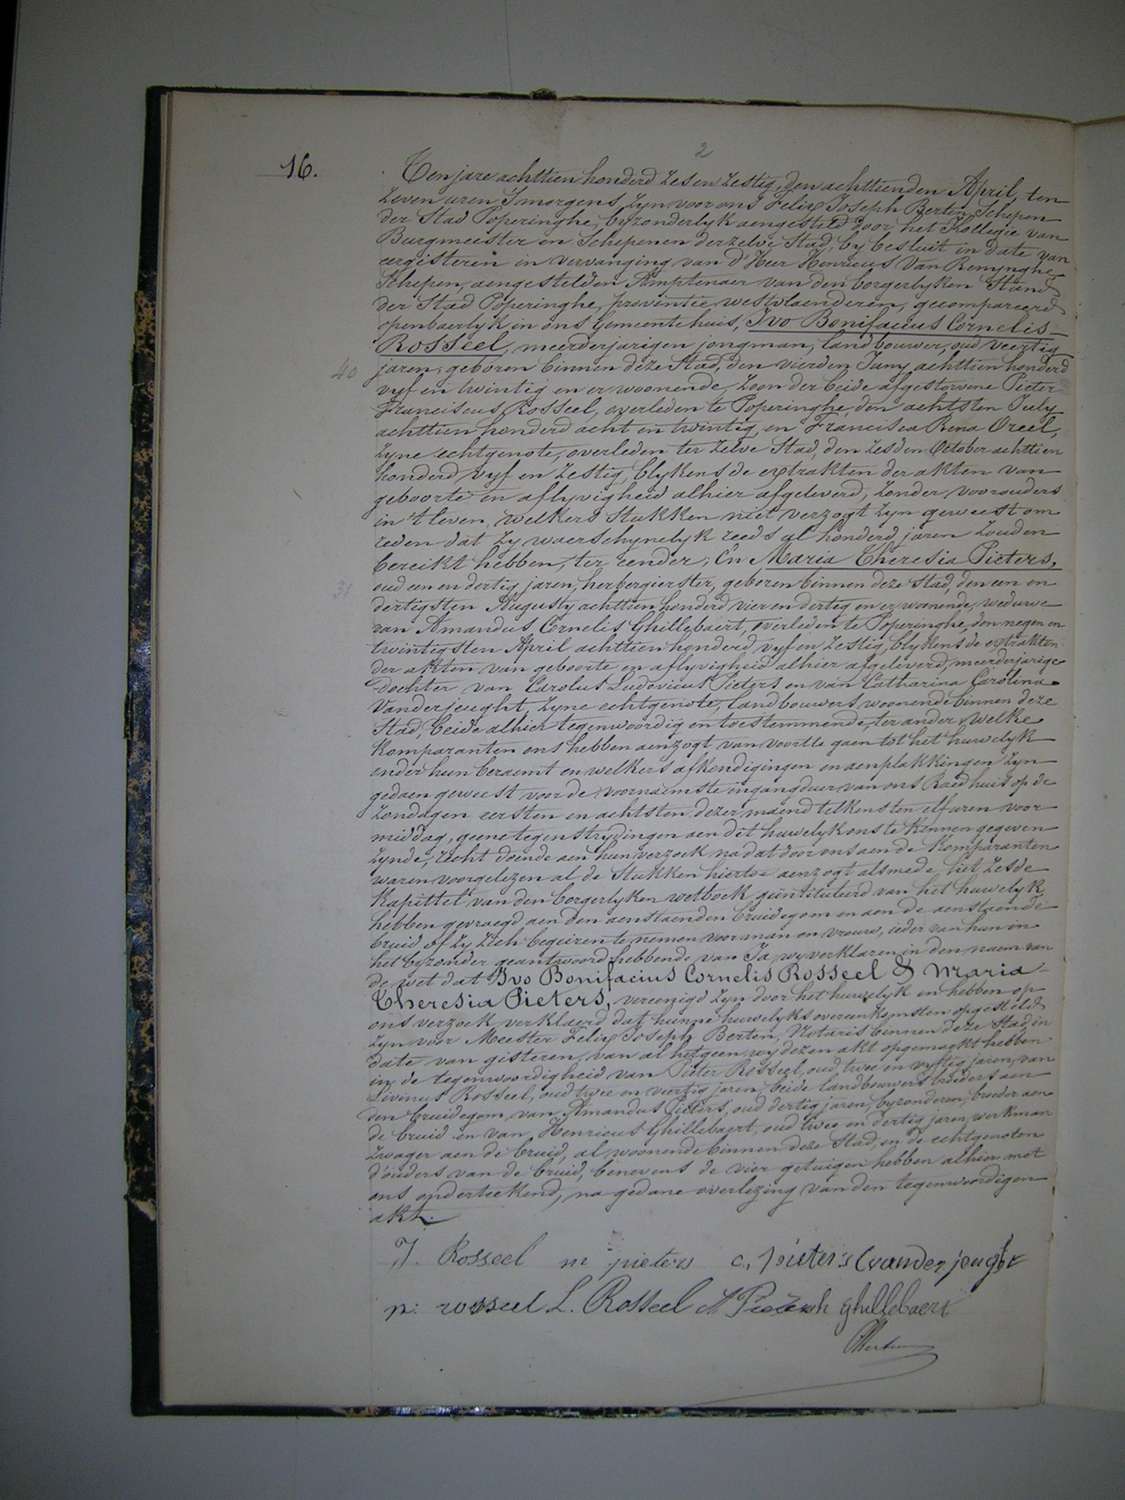 2
16.
Ten jare achttien honderd zes en zestig, den achttienden April, ten
zeven uren 's morgens, zyn voor ons Felix Joseph Berten, Schepen
der Stad Poperinghe, byzonderlyk aengesteld door het Kollegie van
Burgmeester en Schepenen derzelve Stad, by besluit in date van
eergisteren in vervanging van d'Heer Henricus Van Renynghe,
Schepen, aengestelden Amptenaer van den borgerlyken Stand
der Stad Poperinghe, provintie westvlaenderen, gecompareerd
openbaerlyk in ons Gemeentehuis, Ivo Bonifacius Cornelis
Rosseel, meerderjarigen jongman, landbouwer, oud veertig
40 jaren, geboren binnen deze Stad, den vierden Juny achttien honderd
vyf en twintig en er woonende, zoon der beide afgestorvene Pieter
Franciscus Rosseel, overleden te Poperinghe, den achtsten July
achttien honderd acht en twintig, en Francisca Rena Oreel,
zyne echtgenote, overleden ter zelve Stad, den zesden October achttien
honderd vyf en zestig, blykens de extrakten der akten van
geboorte en aflyvigheid alhier afgeleverd, zonder voorouders
in 't leven, welkers Stukken niet verzogt zyn geweest om
reden dat zy waerschynelyk reeds al honderd jaren zouden
bereikt hebben, ter eender; En Maria Theresia Pieters,
31 oud een en dertig jaren, herbergierster, geboren binnen deze Stad, den een en
dertigsten Augusty achttien honderd vier en dertig en er woonende, weduwe
van Amandus Cornelis Ghillebaert, overleden te Poperinghe, den negen en
twintigsten April achttien honderd vyf en zestig, blykens de extrakten
der akten van geboorte en aflyvigheid alhier afgeleverd, meerderjarige
dochter van Carolus Ludovicus Pieters en van Catharina Carolina
Vanderjeught, zyne echtgenote, landbouwers, woonende binnen deze
Stad, beide alhier tegenwoordig en toestemmende, ter ander; Welke
Komparanten ons hebben aenzogt van voorts te gaen tot het huwelyk
onder hun beraemt en welkers afkondigingen en aenplakkingen zyn
gedaen geweest voor de voornaemste ingangdeur van ons Raedhuis op de
Zondagen eersten en achtsten dezer maend telkens ten elf uren voor
middag, geene tegenstrydingen aen dit huwelyk ons te kennen gegeven
zynde, recht doende aen hun verzoek, na dat door ons aen de Komparanten
waren voorgelezen al de Stukken hiertoe aenzogt alsmede het zesde
Kapittel van den borgerlyken wetboek geïntituleerd van het huwelyk,
hebben gevraegd aen den aenstaenden bruidegom en aen de aenstaende
bruid of zy zich begeiren te nemen voor man en vrouw, ieder van hun in
het byzonder geantwoord hebbende van Ja, wy verklaren in den naem van
de wet dat Ivo Bonifacius Cornelis Rosseel & Maria
Theresia Pieters, vereenigd zyn door het huwelyk en hebben op
ons verzoek verklaerd dat hunne huwelyks overeenkomsten opgesteld
zyn voor Meester Felix Joseph Berten, Notaris binnen deze Stad in
date van gisteren, van al hetgeen wy dezen akt opgemaakt hebben
in de tegenwoordigheid van Pieter Rosseel, oud twee en vyftig jaren, van
Livinus Rosseel, oud twee en veertig jaren, beide landbouwers broeders aen
den bruidegom, van Amandus Pieters, oud dertig jaren, byzonderen, broeder aen
de bruid en van Henricus Ghillebaert, oud twee en dertig jaren, werkman
zwager aen de bruid, al woonende binnen deze Stad, en de echtgenoten
d'ouders van de bruid, benevens de vier getuigen hebben alhier met
ons onderteekend, na gedane overlezing van den tegenwoordigen
akt.
J. Rosseel m pieters c, pieters C vanderjeught
p: rosseel L. Rosseel A Pieters h ghillebaert